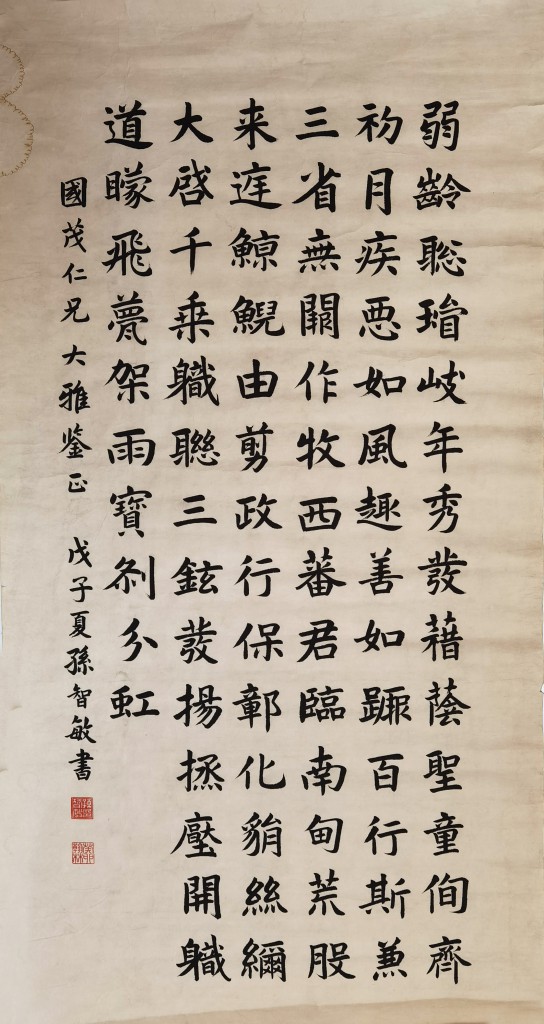 弱齡聡瑨岐年秀發藉蔭聖童侚齊
初月疾恶如風趣善如踧百行斯兼
三省無闕作牧西蕃君臨南甸荒服
来遟鯨鯢由剪政行保鄣化貎絲綸
大啓千乗職聯三鉉發揚拯壓開職
道矇飛甍架雨寶剎分虹
國茂仁兄大雅鉴正 戊子夏孫智敏書